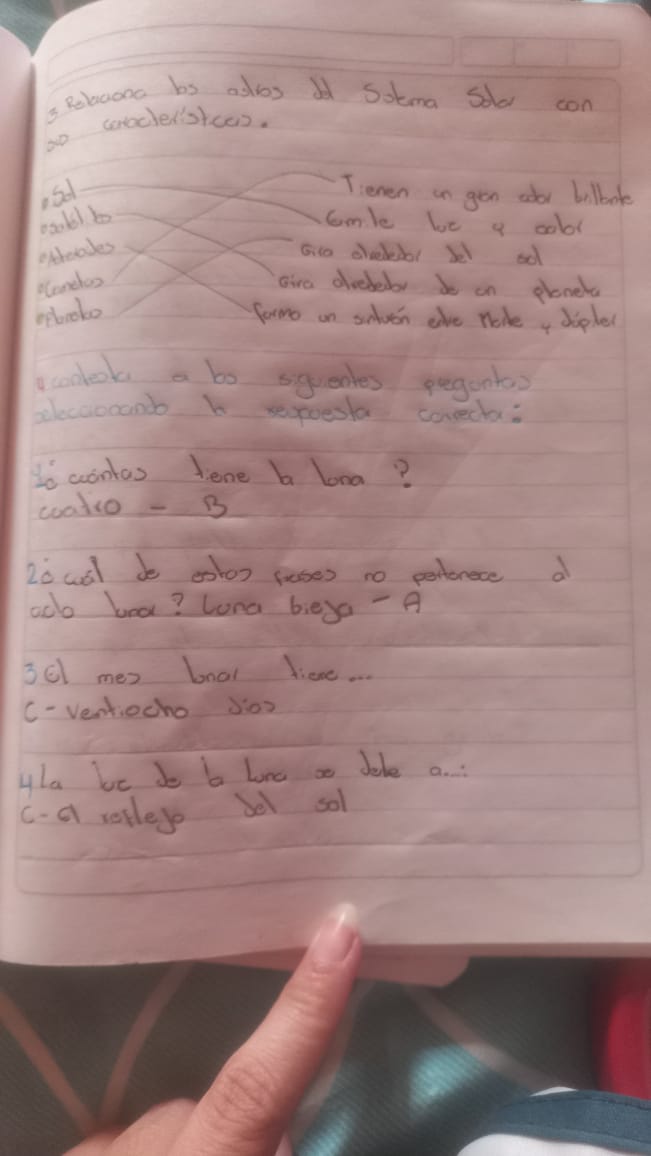 3 Relaciona los astros del Sistema Solar con
sus caracteristicas.
•Sol
Tienen un gran color brillante
•satelites
Emite luz y calor
•Asteroides
Gira alrededor del sol
•Cometas
Gira alrededor de un planeta
•Planetas
Forma un sinturón entre Marte y Júpiter
4 contesta a las siguientes preguntas
seleccionando la respuesta correcta:
1¿ cuántas tiene la luna ?
cuatro - B
2¿ cuál de estas fases no pertenece al
ciclo lunar? Luna bieja - A
3 El mes lunar tiene...
C- ventiocho dias
4 La luz de la luna se debe a...:
C- El reflejo del sol